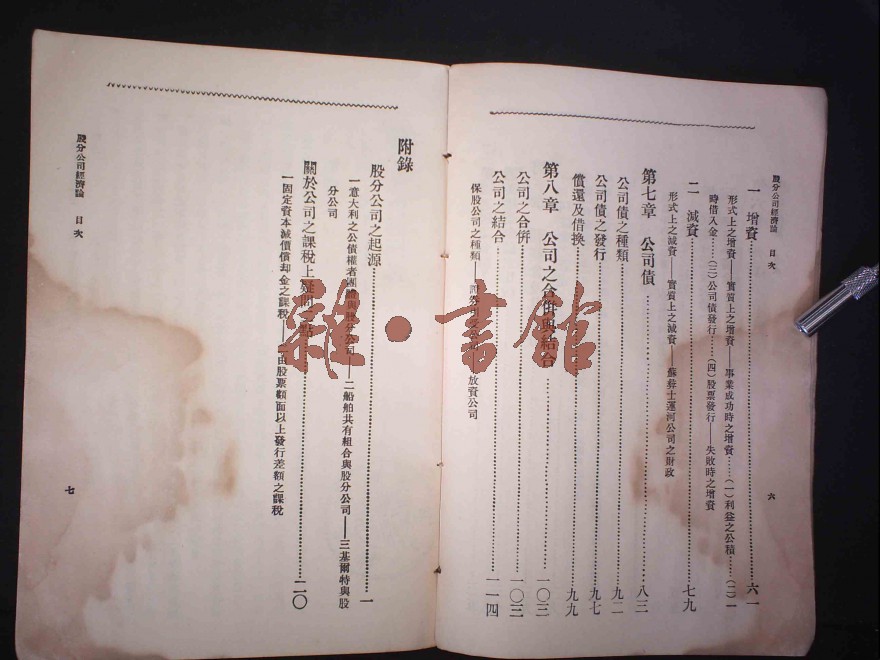 股分公司經濟論 目次
六
一 增資……六一
形式上之增資——實質上之增資——事業成功時之增資……(一)利益之公積……(二)一
時借入金……(三)公司債發行……(四)股票發行——失敗時之增資
二 減資……七九
形式上之減資——實質上之減資——蘇彝士運河公司之財政
第七章 公司債……八三
公司債之種類……九二
公司債之發行……九七
償還及借換……九九
第八章 公司之合併與結合……一〇三
公司之合併……一〇三
公司之結合……一一四
保股公司之種類——放資公司
附錄
股分公司之起源……一
一意大利之公債權者團體與股分公司——二船舶共有組合與股分公司——三基爾特與股
分公司
關於公司之課稅上疑問二點……二〇
一固定資本減價償却金之課稅——二由股票額面以上發行差額之課稅
股分公司經濟論 目次
七
雜·書館